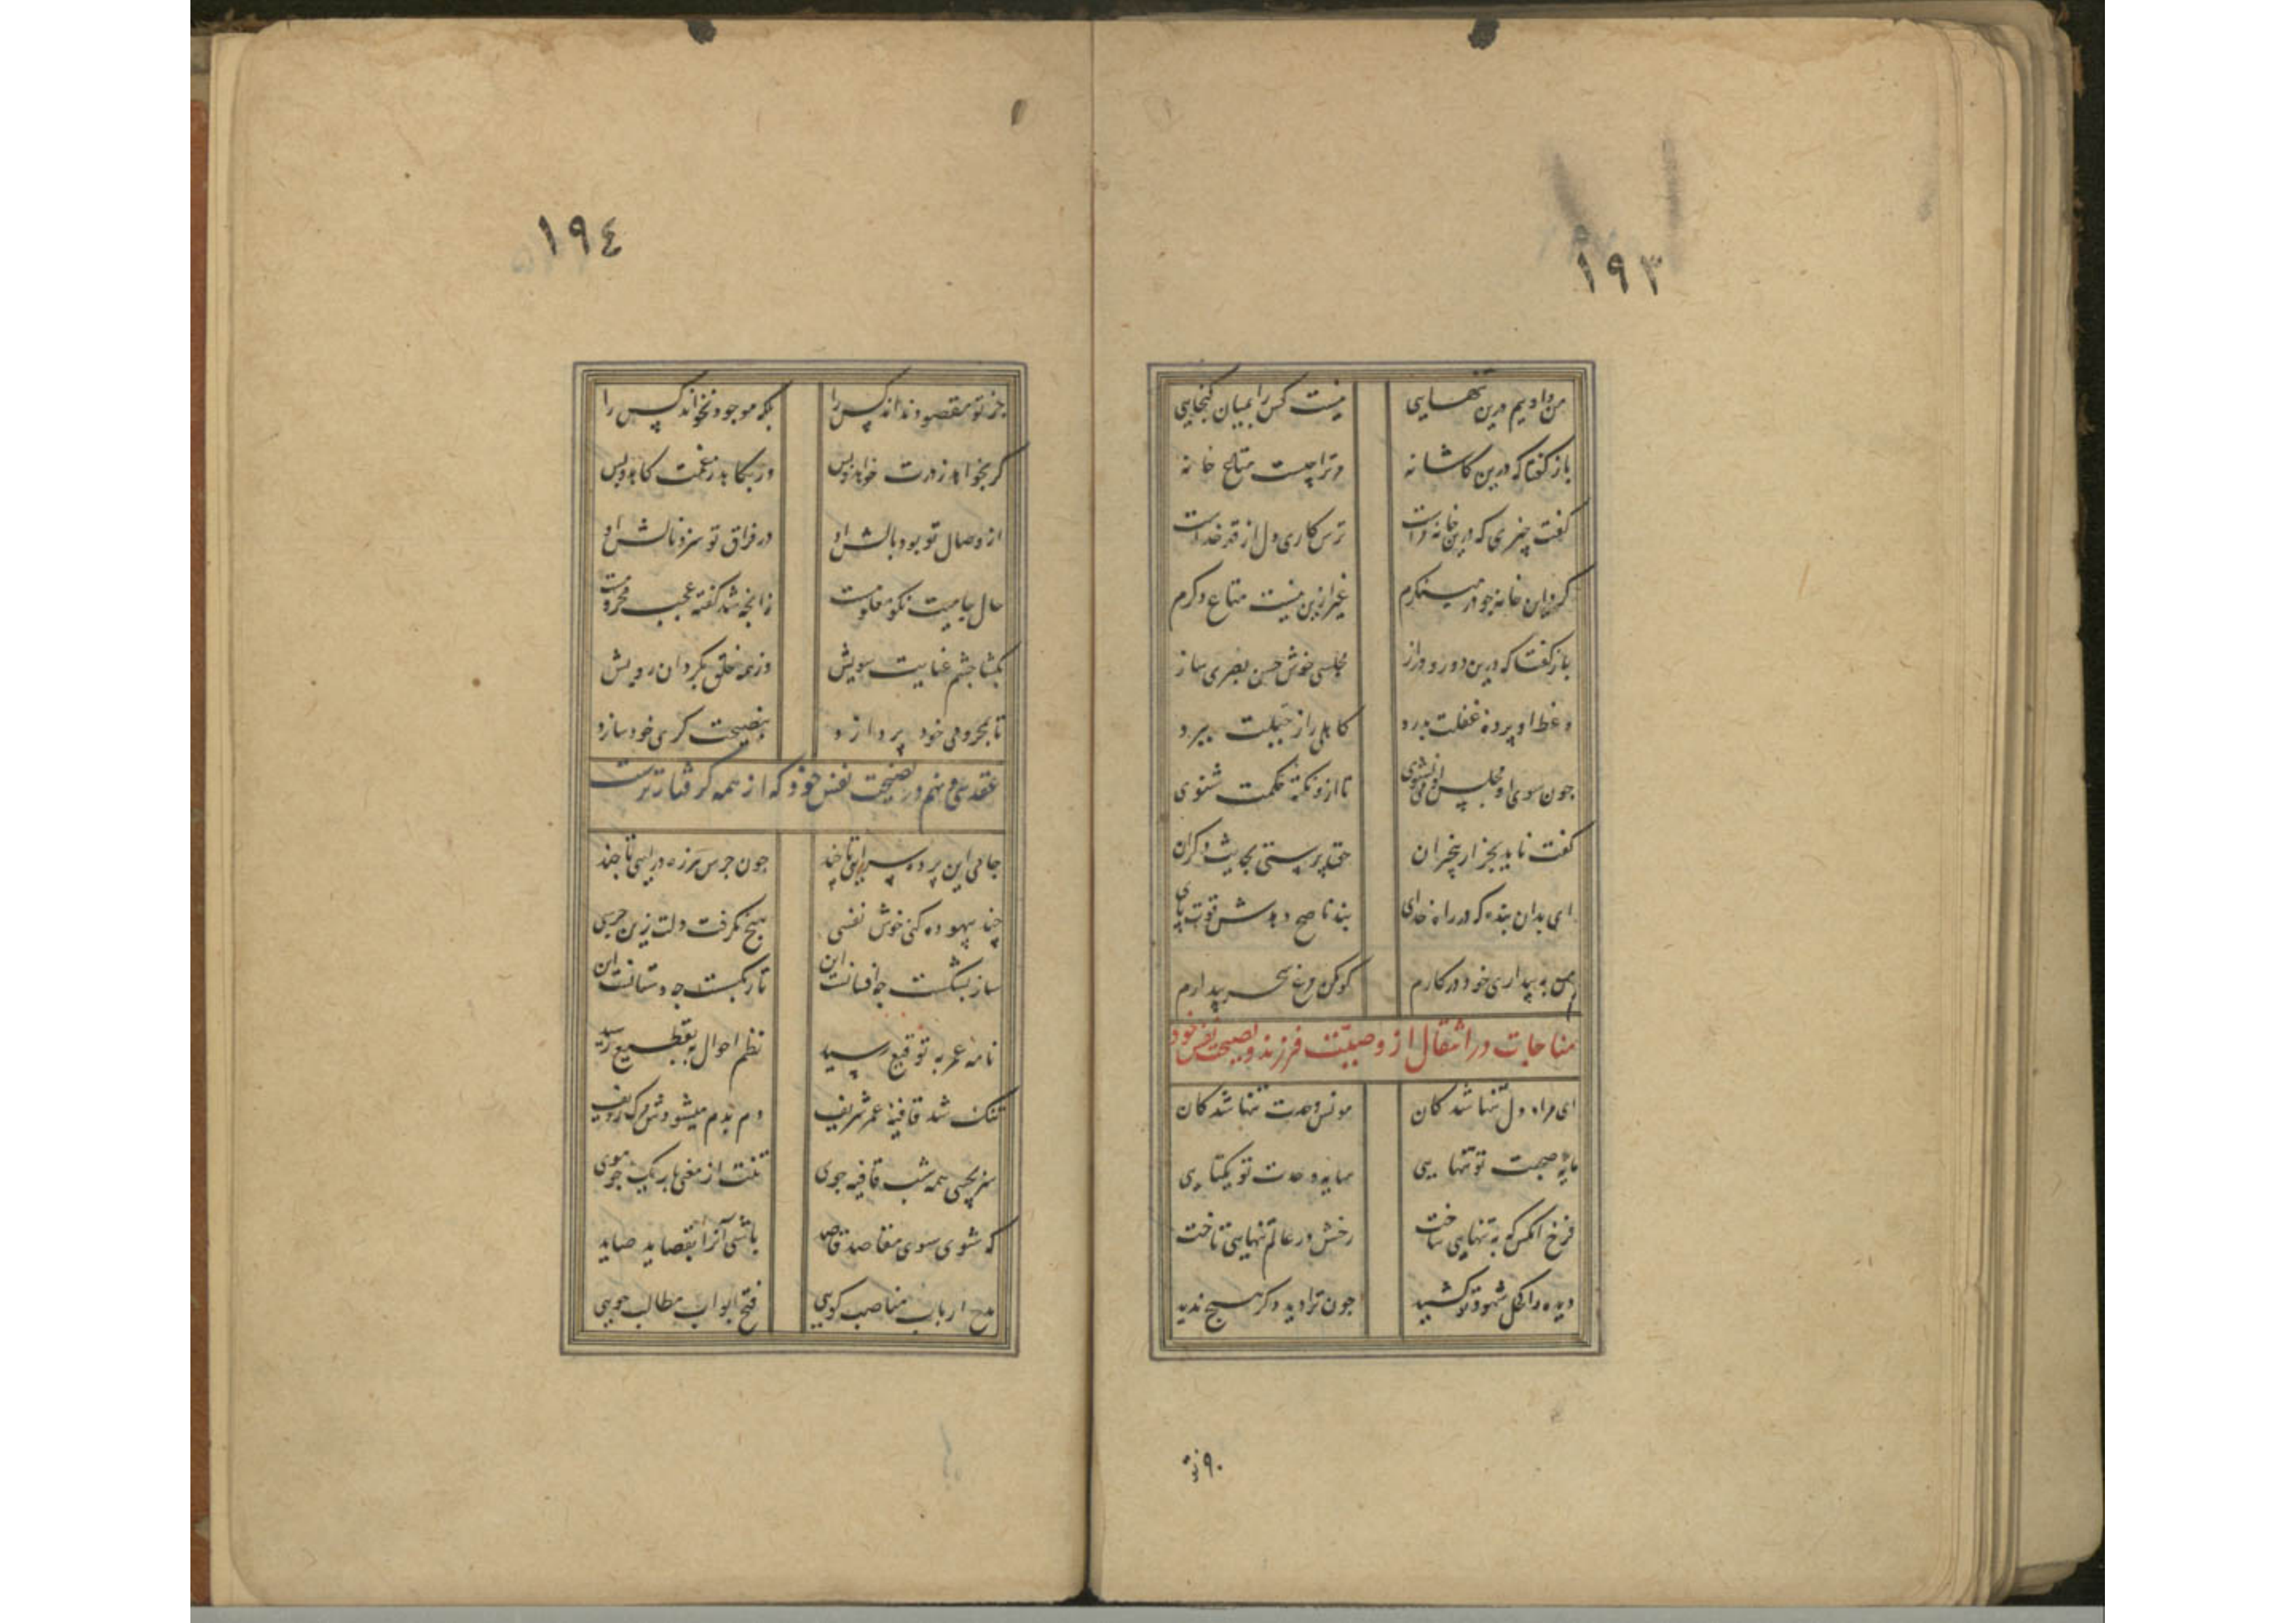 ١٩٣
من و اویم درین تنهایی نیست کس را بمیان گنجایی
باز گفتا که درین کاشانه مر ترا چیست متاع خانه
گفت چیزی که درین خانه مراست ترس کاری دل از قهر خداست
گرد این خانه چو در مینگرم غیر ازین نیست متاع دگرم
باز گفتا که درین دور دراز مجلسی خوش حسن بصری ساز
وعظ او پرده غفلت بدرد کاهلی را ز جبلت ببرد
چون سوی مجلس او می نشوی تا ازو نکته حکمت شنوی
گفت ناید بجز از بیخبران حقپرستی بحدیث دگران
ای بدان بنده که در راه خدای پند ناصح دهدش قوت پای
من به بیداری خود در کارم گو مکن مرغ سحر بیدارم
مناجات در انتقال از وصیت فرزند و نصیحت نفس خود
ای مراد دل تنها شدگان مونس وحدت تنها شدگان
مایه صحبت تو تنهایی سایه وحدت تو یکتایی
فرخ آنکس که به تنهایی ساخت رخش در عالم تنهایی تاخت
دیده را کحل شهود تو کشید چون ترا دید دگر هیچ ندید
٩٠
١٩٤
جز تو مقصود نداند کس را بلکه موجود نخواند کس را
گر بخواهد ز درت خواهد و بس ور بکاهد ز غمت کاهد و بس
از وصال تو بود بالش او در فراق تو سزد نالش او
حال جامیت نکو معلومست زانچه شد گفته عجب محرومست
بگشا چشم عنایت سویش وز همه خلق بگردان رویش
تا بمحرومی خود پردازد بنصیحت گری خود سازد
عقد سی و نهم در نصیحت نفس خود که از همه گرفتارترست
جامی این پرده سرایی تا چند چون جرس هرزه درایی تا چند
چند بیهوده کنی خوش نفسی هیچ نگرفت دلت زین جرسی
ساز بشکست چه افغانست این تار بگسست چه دستانست این
نامه عمر به توقیع رسید نظم احوال به تقطیع رسید
تنگ شد قافیه عمر شریف دم بدم میشودش مرگ ردیف
سر بجیبی همه شب قافیه جوی تنت از معنی باریک چو موی
که شوی سوی مقاصد قاصد باشی آنرا بقصاید صاید
مدح ارباب مناصب گویی فتح ابواب مطالب جویی